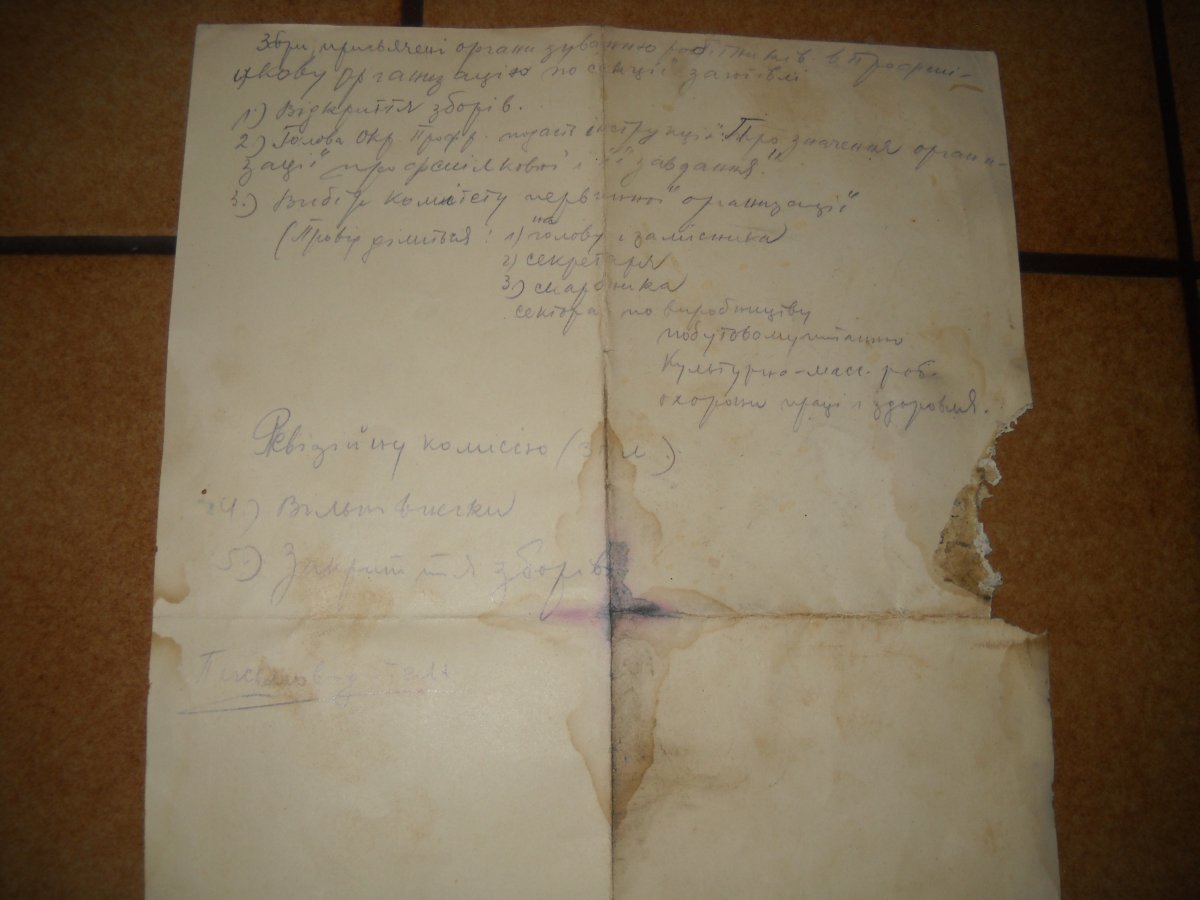 Збори, присьвячені органи зуванню робітників в Профспі-
лкову організацію по секції
1.) Відкриття зборів.
2.) Голова Окр. Профр. подасть інструкції "Про значення органі-
зації профспілкової і її завдання."
3.) Вибір комітету первинної організації
(Провід ділиться: 1) на голову і замісника
2) секретаря
3) скарбника
сектора по виробництву
побутовому питанню
Культурно-масс. роб.
охорони праці і здоровля.
Ревізійну комісію (3 чл.)
4.) Вільні внески
5.) Закриття зборів